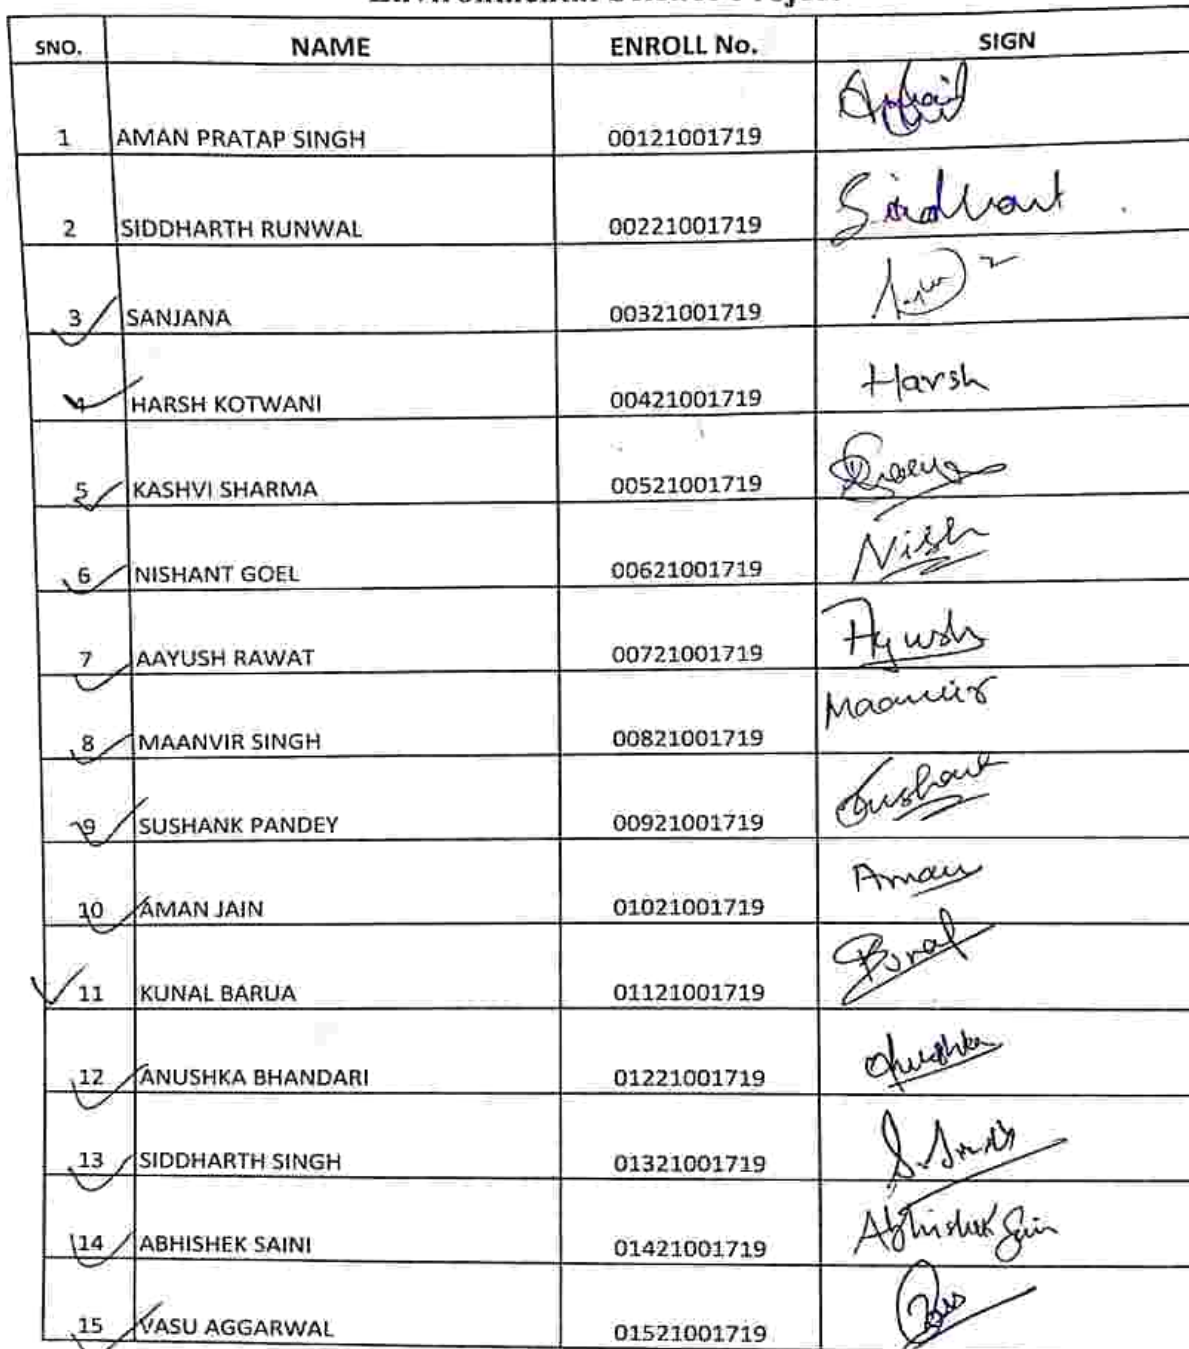 SNO. NAME ENROLL No. SIGN
1 AMAN PRATAP SINGH 00121001719
2 SIDDHARTH RUNWAL 00221001719
3 SANJANA 00321001719
4 HARSH KOTWANI 00421001719 Harsh
5 KASHVI SHARMA 00521001719
6 NISHANT GOEL 00621001719 Nish
7 AAYUSH RAWAT 00721001719 Ayush
8 MAANVIR SINGH 00821001719 Maanvir
9 SUSHANK PANDEY 00921001719 Sushank
10 AMAN JAIN 01021001719 Aman
11 KUNAL BARUA 01121001719
12 ANUSHKA BHANDARI 01221001719 Anushka
13 SIDDHARTH SINGH 01321001719
14 ABHISHEK SAINI 01421001719 Abhishek Saini
15 VASU AGGARWAL 01521001719